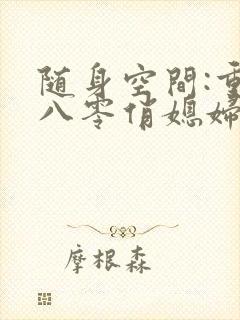 随身空間:重
八零俏媳婦
摩根森